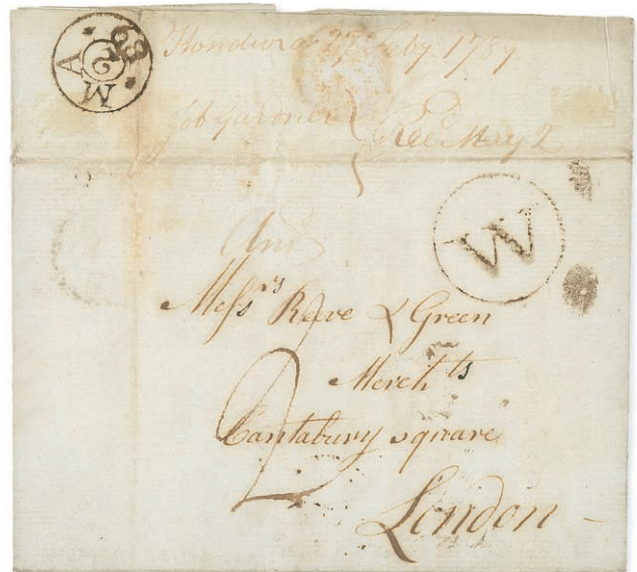 MA
2
89
Honduras 27 Feby 1789
Job Gardner } Recd May 2
W
Ansd
Messrs Reeve & Green
Merchts
2
Cantabury square
London